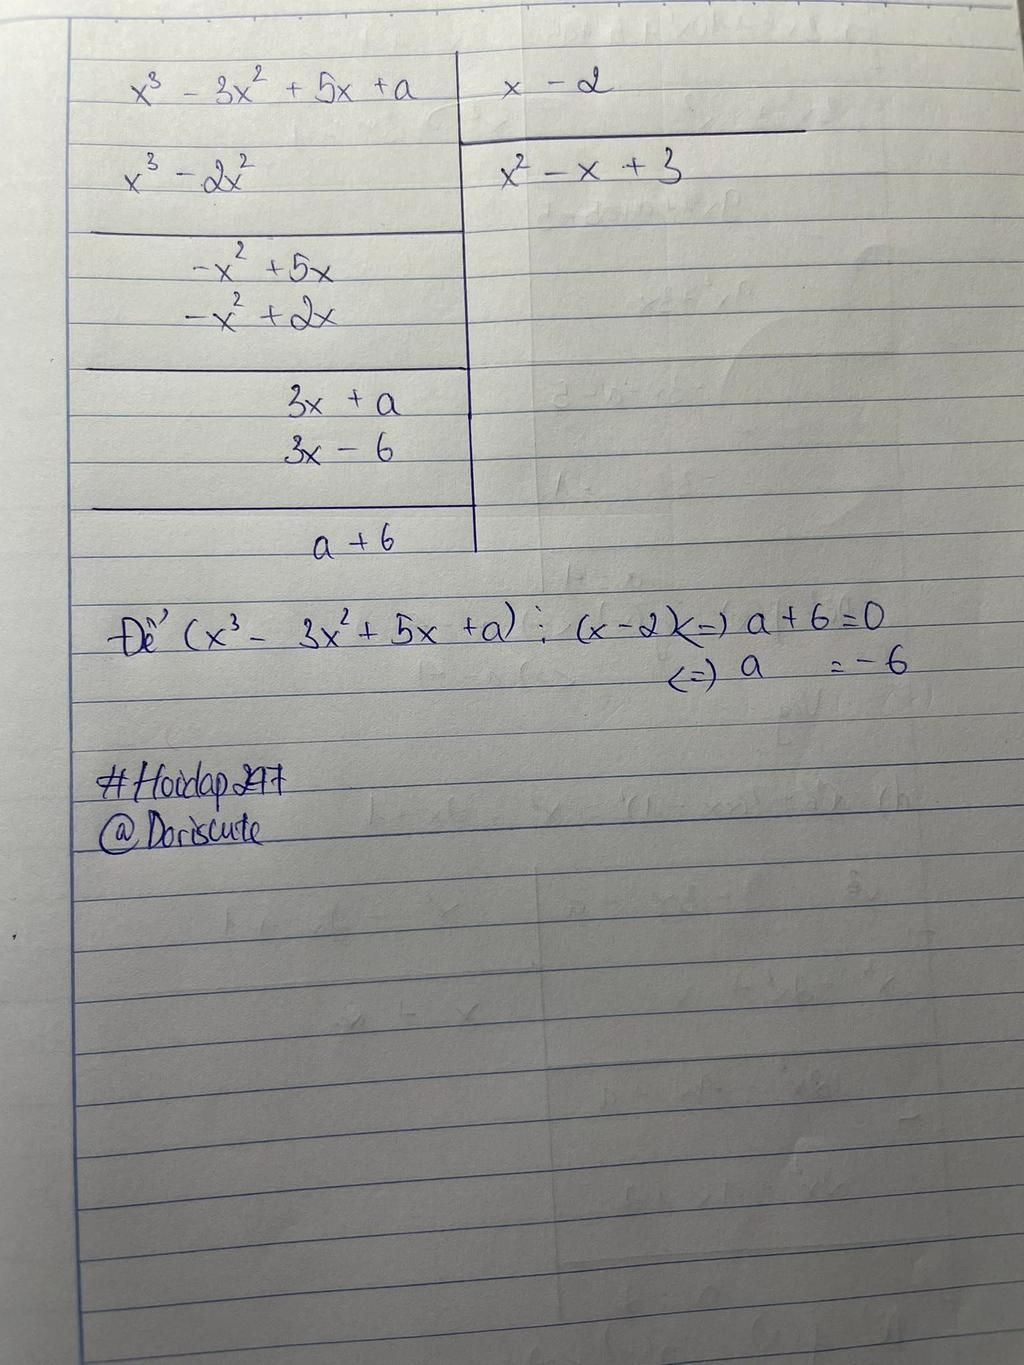 x³ - 3x² + 5x + a | x - 2
x³ - 2x² | x² - x + 3
-x² + 5x
-x² + 2x
3x + a
3x - 6
a + 6
Để (x³ - 3x² + 5x + a) ⋮ (x - 2) <=> a + 6 = 0
<=> a = -6
#Hoidap247
@Doriscute